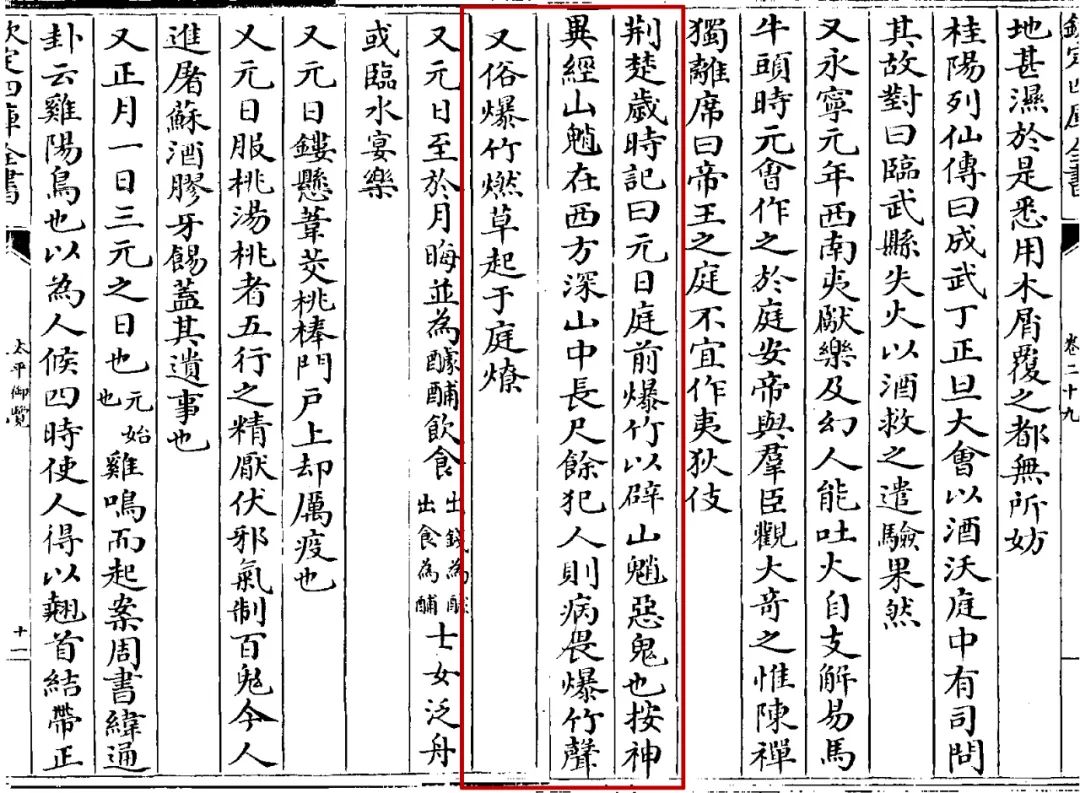 地甚濕於是悉用木屑覆之都無所妨
桂陽列仙傳曰成武丁正旦大會以酒沃庭中有司問
其故對曰臨武縣失火以酒救之遣驗果然
又永寧元年西南夷獻樂及幻人能吐火自支解易馬
牛頭時元會作之於庭安帝與羣臣觀大奇之惟陳禪
獨離席曰帝王之庭不宜作夷狄伎
荆楚歲時記曰元日庭前爆竹以辟山魈惡鬼也按神
異經山魈在西方深山中長尺餘犯人則病畏爆竹聲
又俗爆竹燃草起于庭燎
又元日至於月晦並為醵酺飲食出錢為醵出食為酺士女泛舟
或臨水宴樂
又元日鏤懸葦茭桃棒門戸上却厲疫也
又元日服桃湯桃者五行之精厭伏邪氣制百鬼今人
進屠蘇酒膠牙餳蓋其遺事也
又正月一日三元之日也元始也雞鳴而起案周書緯通
卦云雞陽鳥也以為人候四時使人得以翹首結帶正
欽定四庫全書
卷二十九
太平御覽
十一